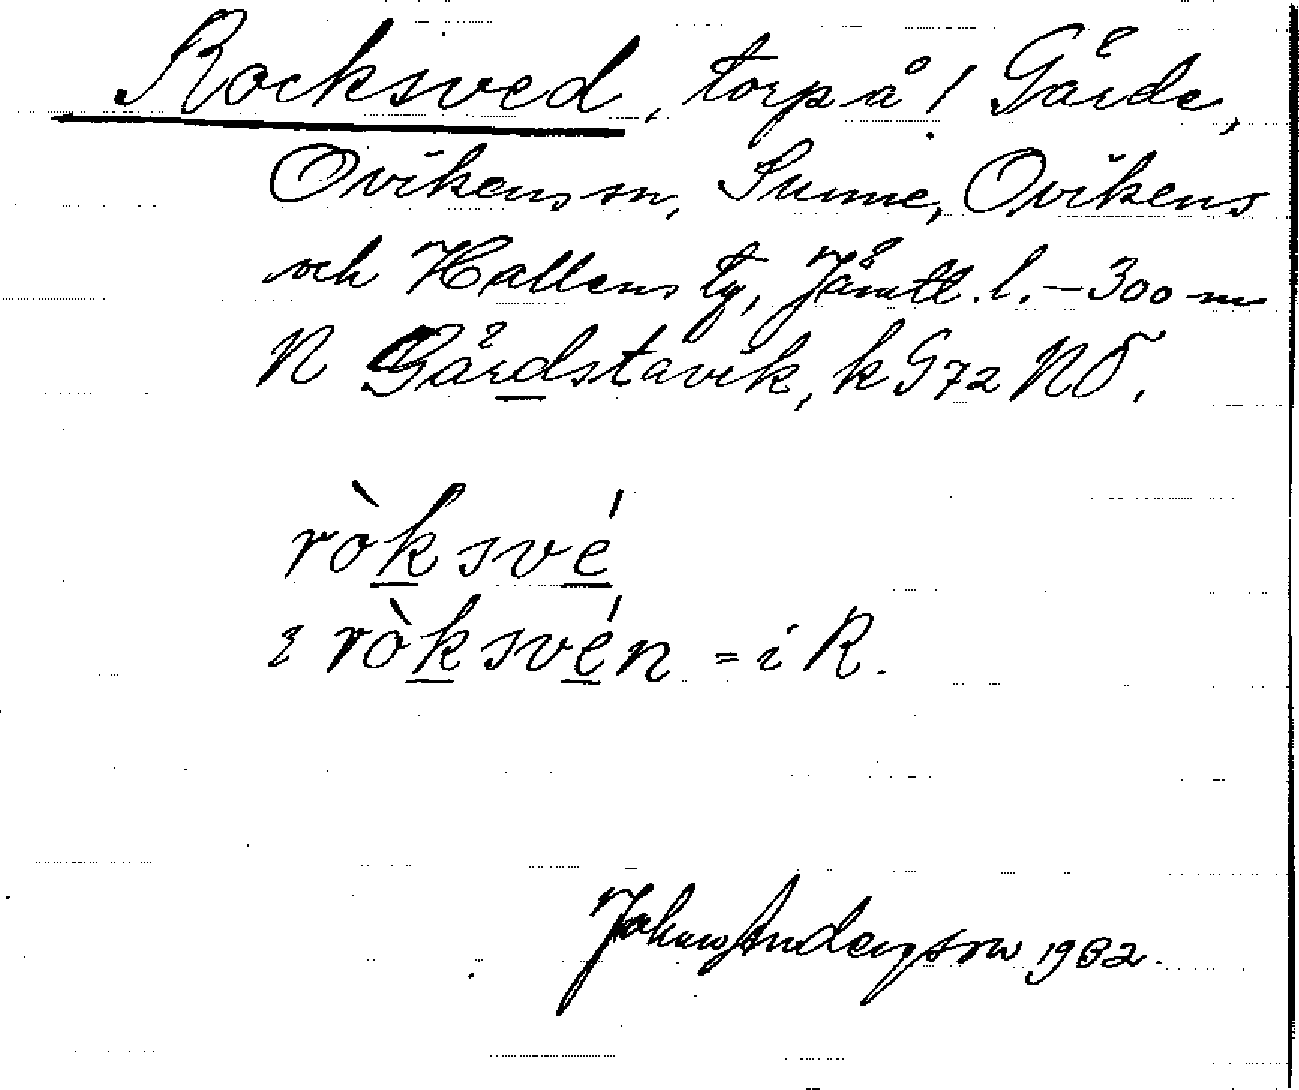 Rocksved, torp å 1 Gärde,
Ovikens sn, Sunne, Ovikens
och Hallens tg, Jämtl. l. – 300 m
N Gärdstavik, k G72 NO.
ròksvé
i ròksvén = i R.
Johan Anderson 1932.